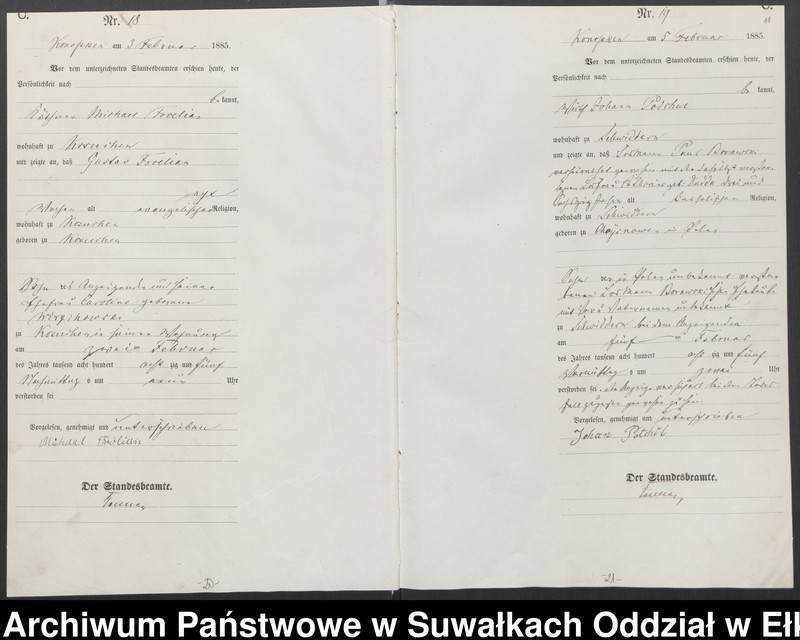 C.
Nr. 18
Konopken am 3 Februar 1885.
Vor dem unterzeichneten Standesbeamten erschien heute, der
Persönlichkeit nach
be kannt,
Käthner Michael Froelian
wohnhaft zu Kosuchen
und zeigte an, daß Gustav Froelian
acht
Wochen alt evangelischer Religion,
wohnhaft zu Kosuchen
geboren zu Kosuchen
Sohn des Anzeigenden und seiner
Ehefrau Caroline geborene
zu Kosuchen in seiner Wohnung
am zwei ten Februar
des Jahres tausend acht hundert acht zig und fünf
Nachmittag s um neun Uhr
verstorben sei
Vorgelesen, genehmigt und unterschrieben
Michael Frölian
Der Standesbeamte.
-20-
C.
Nr. 19
Konopken am 5 Februar 1885.
Vor dem unterzeichneten Standesbeamten erschien heute, der
Persönlichkeit nach
be kannt,
Johann
wohnhaft zu Schwiddern
und zeigte an, daß Losmann Paul Borawski
drei und
sechszig Jahre alt katholischer Religion,
wohnhaft zu Schwiddern
geboren zu in Polen
Sohn der in Polen unbekannt verstor
benen Losmann Borawskischen Eheleute
zu Schwiddern bei dem Anzeigenden
am fünf ten Februar
des Jahres tausend acht hundert acht zig und fünf
Vormittag s um zwei Uhr
verstorben sei
Vorgelesen, genehmigt und unterschrieben
Johan
Der Standesbeamte.
-21-
Archiwum Państwowe w Suwałkach Oddział w Eł